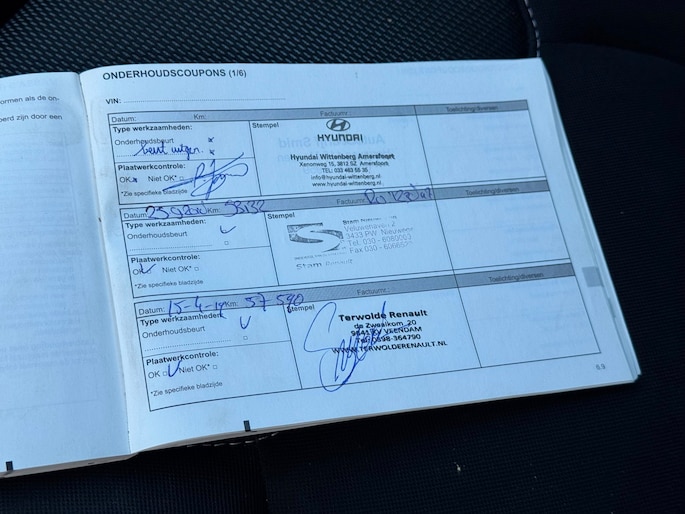 ormen als de on-
erd zijn door een
ONDERHOUDSCOUPONS (1/6)
VIN:
Datum: Km: Factuurnr.: Toelichting/diversen
Type werkzaamheden:
Stempel
Onderhoudsbeurt
beurt
HYUNDAI
Hyundai Wittenberg Amersfoort
Xenonweg 15, 3812 SZ Amersfoort
TEL: 033 463 55 35
info@hyundai-wittenberg.nl
www.hyundai-wittenberg.nl
Plaatwerkcontrole:
OK Niet OK*
*Zie specifieke bladzijde
Datum: Km: Factuurnr.: Toelichting/diversen
Type werkzaamheden:
Stempel
Onderhoudsbeurt
Veluwehaven 2
3433 PW Nieuwegein
Tel. 030 -
Fax 030 -
Stam Renault
Plaatwerkcontrole:
OK Niet OK*
*Zie specifieke bladzijde
Datum: 15-4-19 Km: 57-590 Factuurnr.: Toelichting/diversen
Type werkzaamheden:
Stempel
Onderhoudsbeurt
Terwolde Renault
de Zwaaikom 20
VEENDAM
Tel. 0598-364790
WWW.TERWOLDERENAULT.NL
Plaatwerkcontrole:
OK Niet OK*
*Zie specifieke bladzijde
6.9